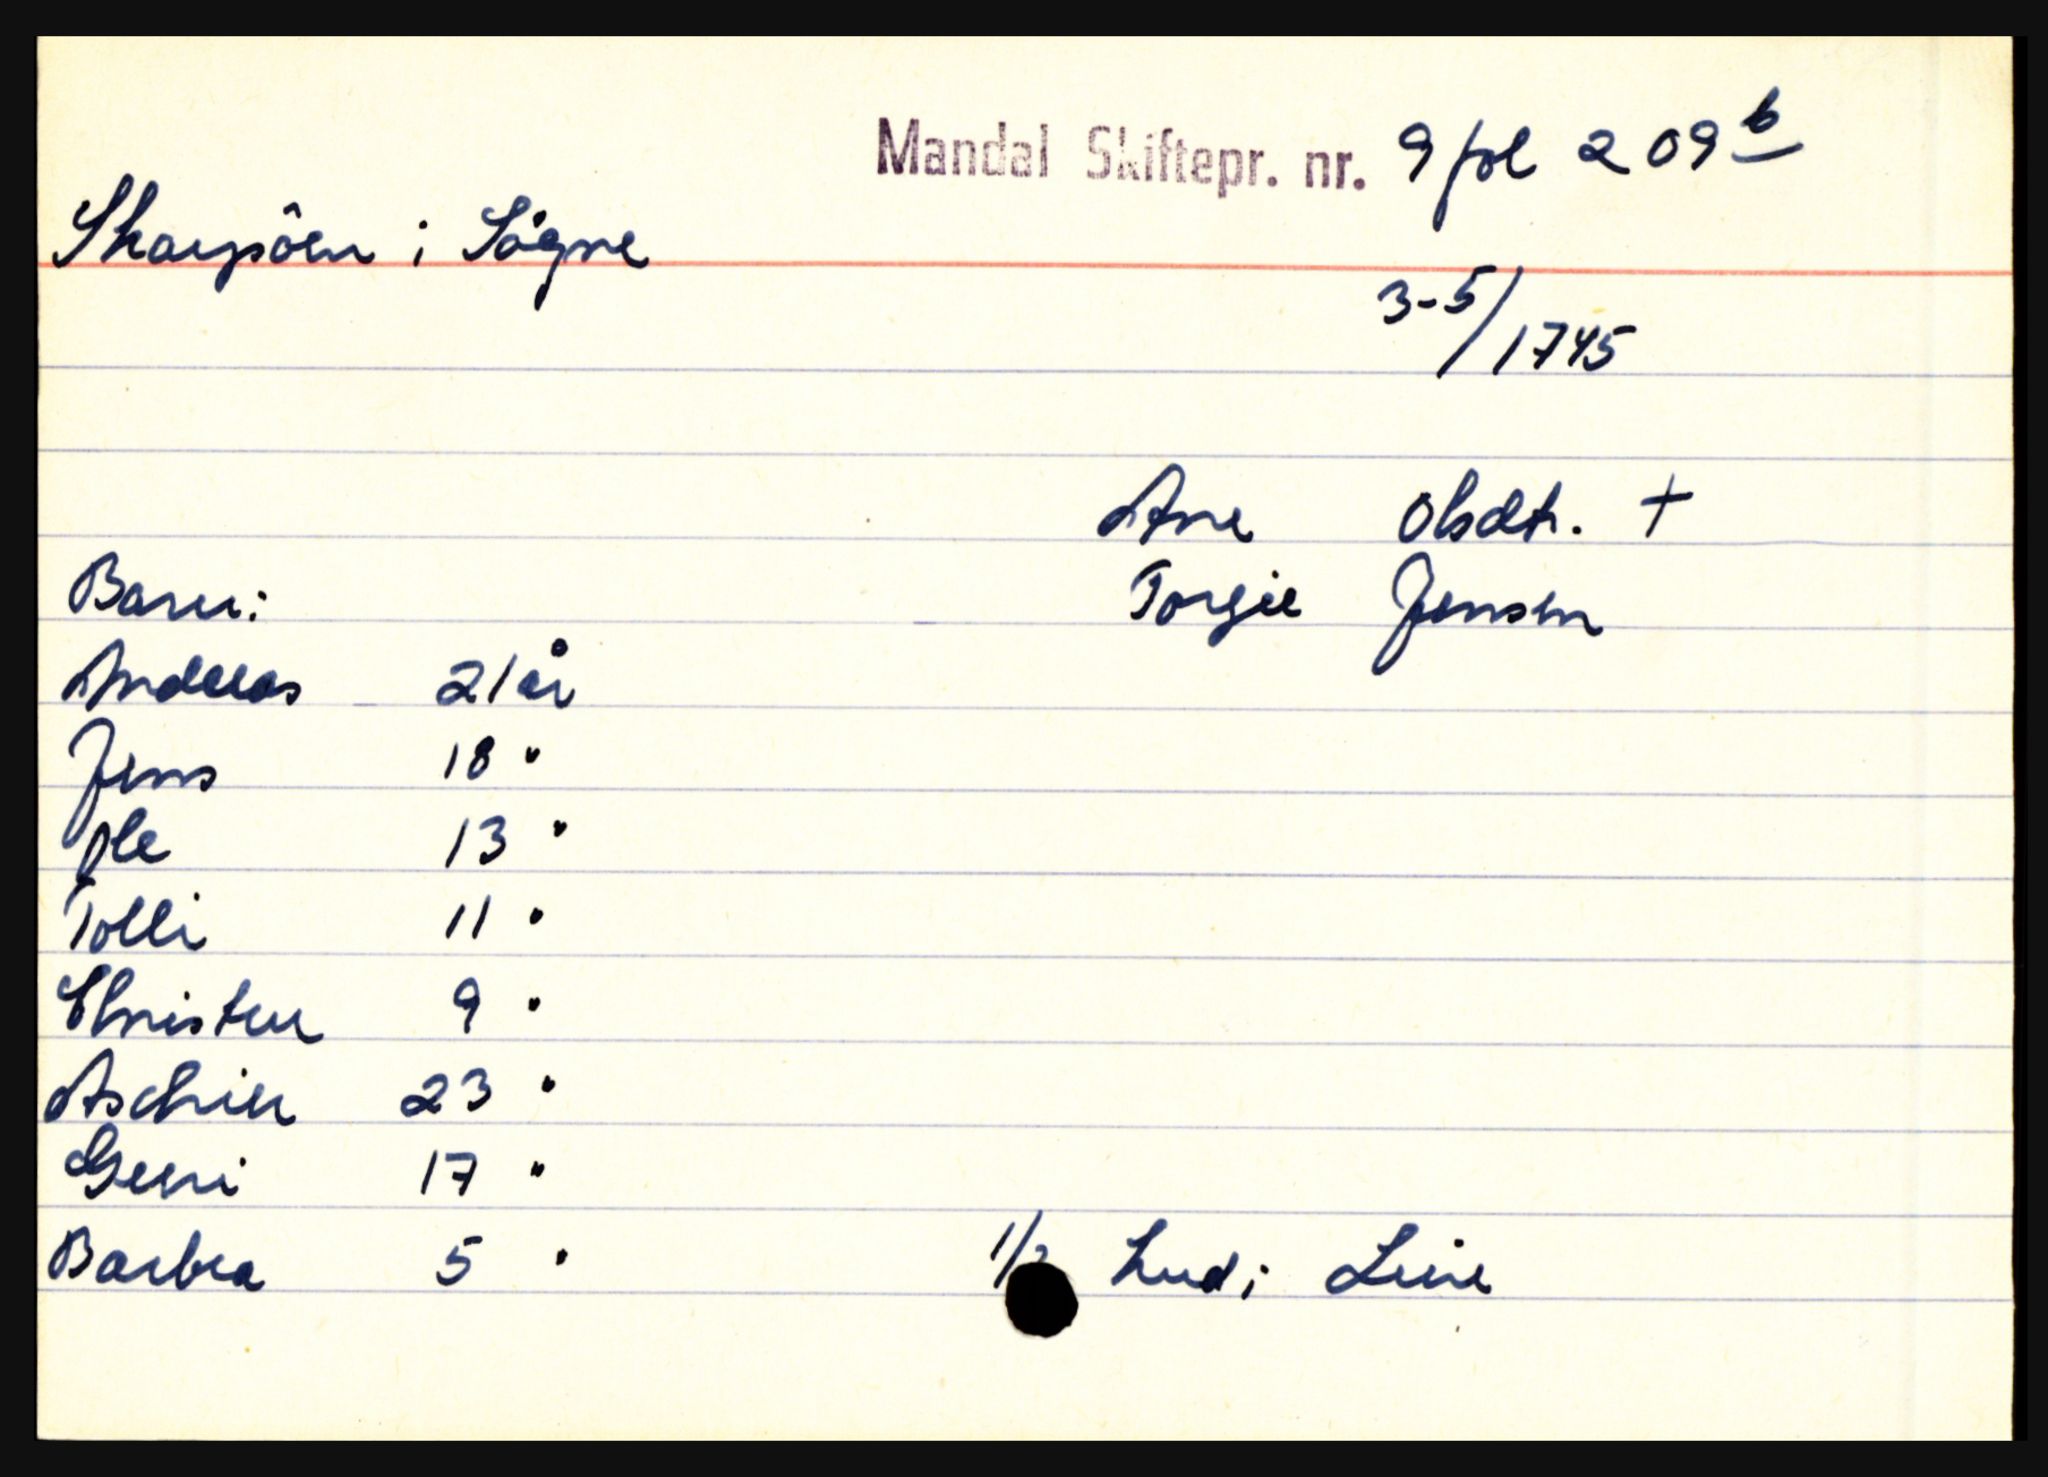 Mandal Skiftepr. nr. 9 fol 209 b
Skarpöen i Sögne
3-5/1745
Ane Olsdtr. +
Barn: Torgie Jensen
Andreas 21 år
Jens 18 "
Ole 13 "
Tolli 11 "
Christen 9 "
Aschier 23 "
Geeri 17 "
Barbra 5 " 1/2 hud i